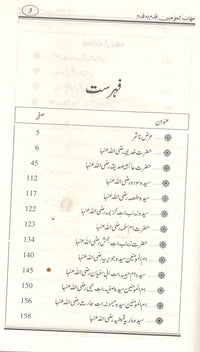 امہات المومنین قدم بہ قدم
3
فہرست
عنوان صفحہ
عرض ناشر 5
حضرت خدیجہ رضی اللہ عنہا 6
حضرت عائشہ صدیقہ رضی اللہ عنہا 45
سیدہ سودہ رضی اللہ عنہا 112
سیدہ حفصہ رضی اللہ عنہا 117
سیدہ زینب بنت خزیمہ رضی اللہ عنہا 122
حضرت ام سلمہ رضی اللہ عنہا 123
حضرت زینب بنت جحش رضی اللہ عنہا 134
ام المومنین سیدہ جویریہ رضی اللہ عنہا 140
سیدہ ام حبیبہ بنت ابی سفیان رضی اللہ عنہا 145
ام المومنین سیدہ صفیہ بنت حیی رضی اللہ عنہا 150
ام المومنین سیدہ میمونہ بنت حارث رضی اللہ عنہا 156
سیدہ ماریہ قبطیہ رضی اللہ عنہا 158